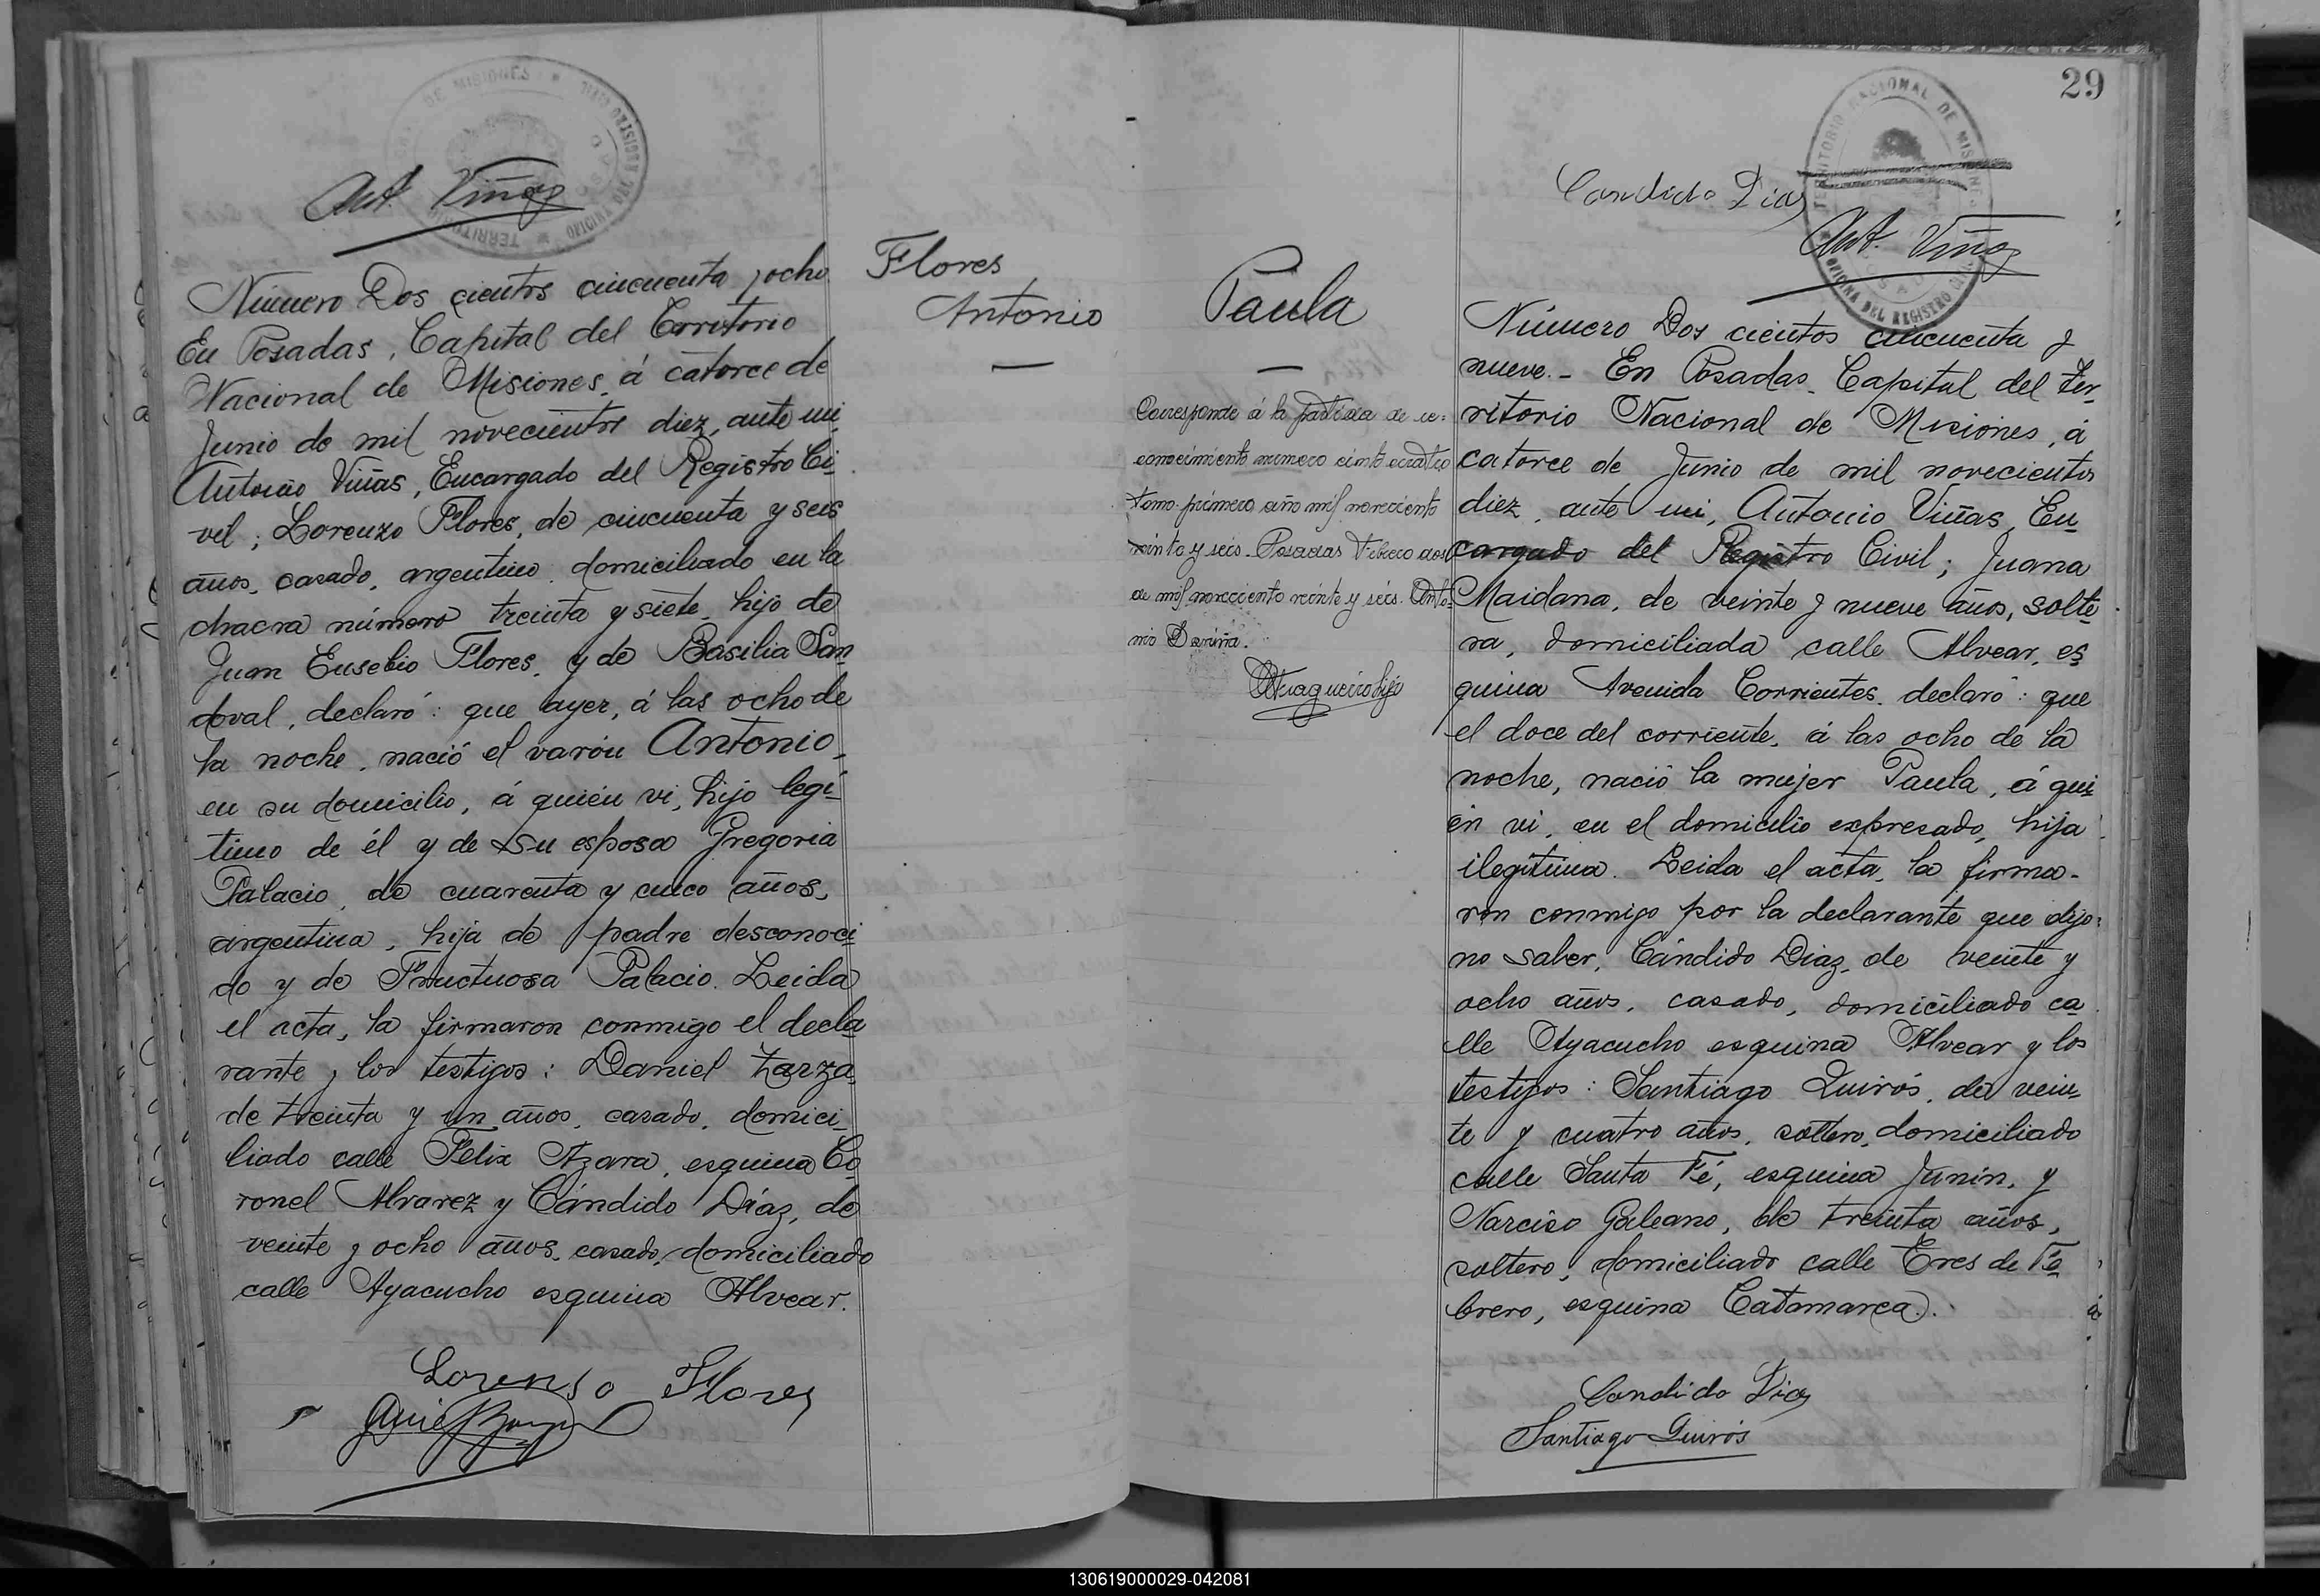 Ant. Viñas
Número Dos cientos cincuenta y ocho
En Posadas, Capital del Territorio
Nacional de Misiones, á catorce de
Junio de mil novecientos diez, ante mi
Antonio Viñas, Encargado del Registro Ci-
vil; Lorenzo Flores, de cincuenta y seis
años, casado, argentino, domiciliado en la
chacra número treinta y siete, hijo de
Juan Eusebio Flores, y de Basilia San
doval, declaró: que ayer, á las ocho de
la noche, nació el varón Antonio,
en su domicilio, á quién vi, hijo legí-
timo de él y de su esposa Gregoria
Palacio, de cuarenta y cinco años,
argentina, hija de padre desconoci
do y de Fructuosa Palacio. Leida
el acta, la firmaron conmigo el decla
rante y los testigos: Daniel Zarza,
de treinta y un años, casado, domici-
liado calle Félix Azara, esquina Co
ronel Alvarez y Cándido Díaz, de
veinte y ocho años, casado, domiciliado
calle Ayacucho esquina Alvear.
Lorenso Flores
Flores
Antonio
—
29
Candido Diaz
Ant. Viñas
Paula
—
Corresponde á la partida de re-
conocimiento numero ciento cuatro
tomo primero año mil novecientos
veinte y seis. Posadas Febrero dos
de mil novecientos veinte y seis. Anto-
nio
Número Dos cientos cincuenta y
nueve.- En Posadas, Capital del Ter-
ritorio Nacional de Misiones, á
catorce de Junio de mil novecientos
diez, ante mi, Antonio Viñas, En-
cargado del Registro Civil; Juana
Maidana, de veinte y nueve años, solte
ra, domiciliada calle Alvear, es
quina Avenida Corrientes, declaró: que
el doce del corriente, á las ocho de la
noche, nació la mujer Paula, á qui
én vi, en el domicilio expresado, hija
ilegítima. Leida el acta, la firma-
ron conmigo por la declarante que dijo
no saber, Cándido Diaz, de veinte y
ocho años, casado, domiciliado ca
lle Ayacucho esquina Alvear y los
testigos: Santiago Quirós, de vein-
te y cuatro años, soltero, domiciliado
calle Santa Fé, esquina Junin, y
Narciso Galeano, de treinta años,
soltero, domiciliado calle Tres de Fe
brero, esquina Catamarca.
Candido Diaz
Santiago Quirós
130619000029-042081